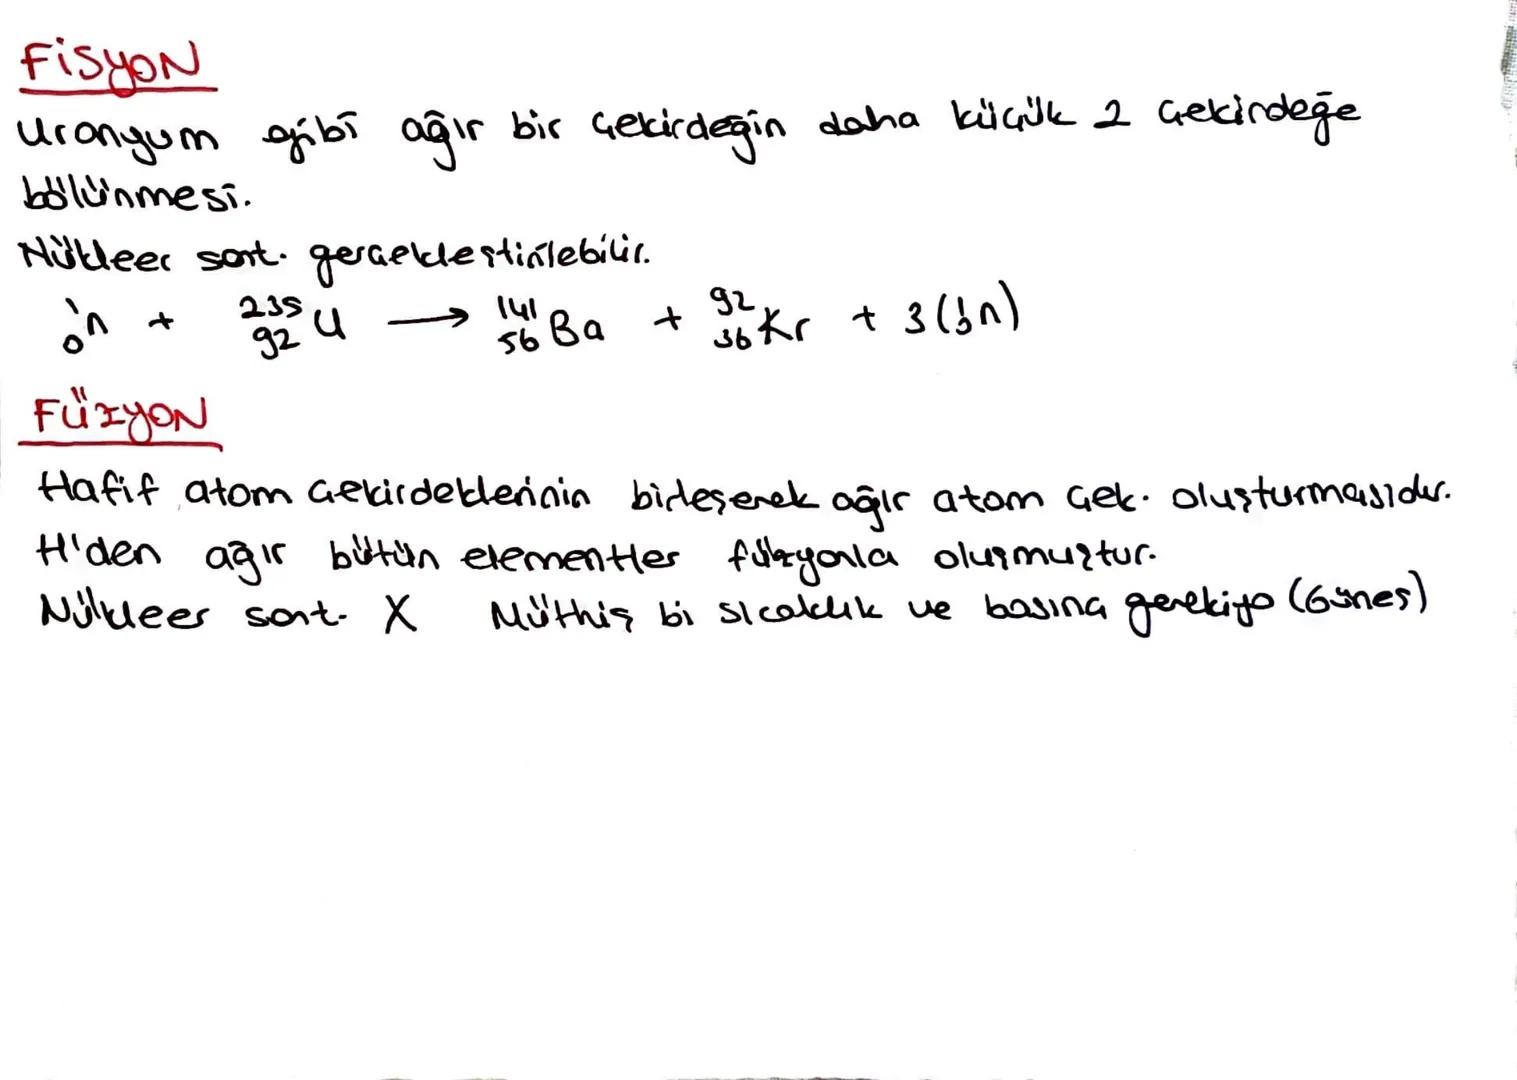 FİSYON
Uranyum gibi ağır bir çekirdeğin daha küçük 2 çekirdeğe
bölünmesi.
Nükleer sant. gerçekleştirilebilir.
¹₀n + ²³⁵₉₂U → ¹⁴¹₅₆Ba + ⁹²₃₆Kr + 3(¹₀n)
FÜZYON
Hafif atom çekirdeklerinin birleşerek ağır atom çek. oluşturmasıdır.
H'den ağır bütün elementler füzyonla oluşmuştur.
Nükleer sant. X Müthiş bi sıcaklık ve basınç gerekiyo (Güneş)